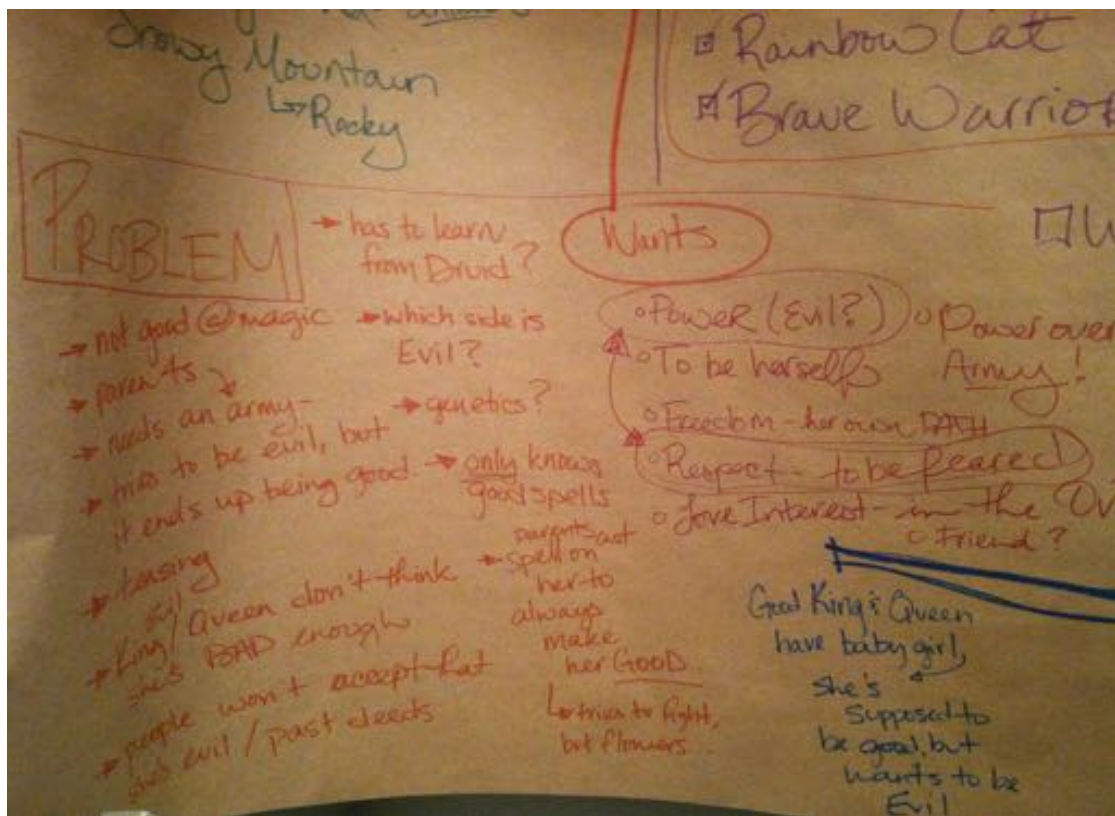 Snowy Mountain
↳ Rocky
Rainbow Cat
Brave Warrior
PROBLEM
→ not good @ magic
→ parents
→ needs an army -
→ tries to be evil, but
it ends up being good
→ teasing
evil
→ King/Queen don't think
she's BAD enough
→ people won't accept that
she's evil / past deeds
→ has to learn
from Druid?
→ which side is
Evil?
→ genetics?
→ only knows
good spells
parents cast
→ spell on
her to
always
make
her GOOD
↳ tries to fight,
but flowers
Wants
Power (Evil?)
To be herself
Freedom - her own PATH
Respect - to be feared
Love Interest - in the
Friend?
Power over
Army!
Good King & Queen
have baby girl,
she's
supposed to
be good, but
wants to be
Evil